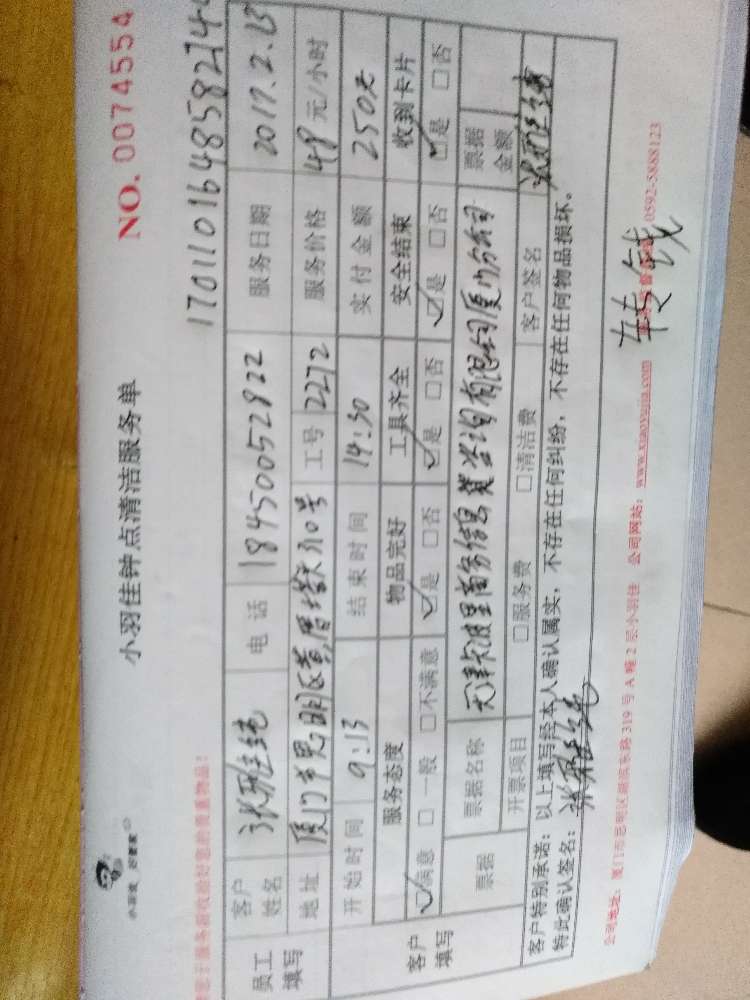 小羽佳 好管家
小羽佳钟点清洁服务单
NO. 0074554
17011016485827
员工填写
客户姓名 张雅纯 电话 18450052822 服务日期 2017.2.13
地址 厦门市思明区 310号 工号 2272 服务价格 49 元/小时
开始时间 9:13 结束时间 14:30 实付金额 250元
客户填写
服务态度 物品完好 工具齐全 安全结束 收到卡片
☑满意 □一般 □不满意 ☑是 □否 ☑是 □否 ☑是 □否 ☑是 □否
票据 票据名称 天津卡波里商务信息咨询有限公司厦门分公司 票据金额
开票项目 □服务费 □清洁费 客户签名 张雅纯
客户特别承诺：以上填写经本人确认属实，不存在任何纠纷，不存在任何物品损坏。
特此确认签名： 张雅纯
转钱
公司地址：厦门市思明区湖滨东路 319 号 A 幢 2 层小羽佳 公司网站：www.xiaoyujia.com 0592-5888123